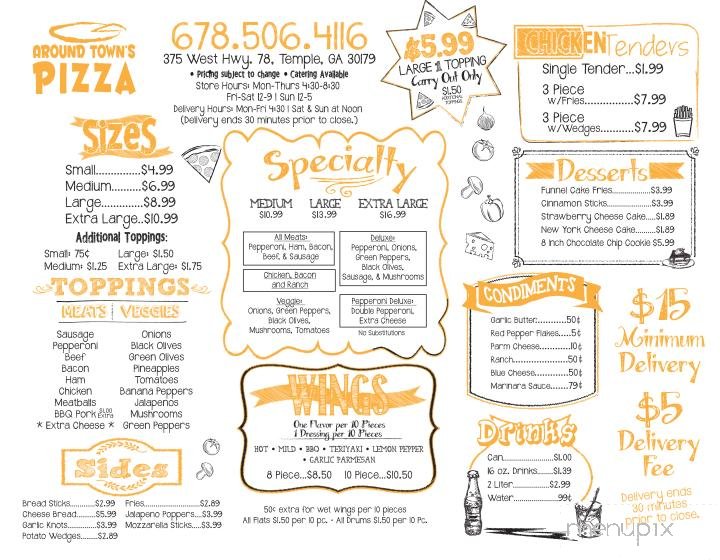 AROUND TOWN'S
PIZZA
678.506.4116
375 West Hwy. 78, Temple, GA 30179
• Pricing subject to change • Catering Available
Store Hours: Mon-Thurs 4:30-8:30
Fri-Sat 12-9 | Sun 12-5
Delivery Hours: Mon-Fri 4:30 | Sat & Sun at Noon
(Delivery ends 30 minutes prior to close.)
$5.99
LARGE 1 TOPPING
Carry Out Only
$1.50
ADDITIONAL
TOPPINGS
CHICKEN Tenders
Single Tender...$1.99
3 Piece
w/Fries..........$7.99
3 Piece
w/Wedges.........$7.99
Sizes
Small............$4.99
Medium.........$6.99
Large............$8.99
Extra Large..$10.99
Additional Toppings:
Small: 75¢ Large: $1.50
Medium: $1.25 Extra Large: $1.75
TOPPINGS
MEATS VEGGIES
Sausage Onions
Pepperoni Black Olives
Beef Green Olives
Bacon Pineapples
Ham Tomatoes
Chicken Banana Peppers
Meatballs Jalapenos
BBQ Pork $1.00 Extra Mushrooms
* Extra Cheese * Green Peppers
Sides
Bread Sticks.........$2.99 Fries..................$2.89
Cheese Bread........$5.99 Jalapeno Poppers...$3.99
Garlic Knots.........$3.99 Mozzarella Sticks....$3.99
Potato Wedges.......$2.89
Specialty
MEDIUM LARGE EXTRA LARGE
$10.99 $13.99 $16.99
All Meats:
Pepperoni, Ham, Bacon,
Beef, & Sausage
Chicken, Bacon
and Ranch
Veggie:
Onions, Green Peppers,
Black Olives,
Mushrooms, Tomatoes
Deluxe:
Pepperoni, Onions,
Green Peppers,
Black Olives,
Sausage, & Mushrooms
Pepperoni Deluxe:
Double Pepperoni,
Extra Cheese
No Substitutions
WINGS
One Flavor per 10 Pieces
1 Dressing per 10 Pieces
HOT • MILD • BBQ • TERIYAKI • LEMON PEPPER
• GARLIC PARMESAN
8 Piece...$8.50 10 Piece...$10.50
50¢ extra for wet wings per 10 pieces
All Flats $1.50 per 10 pc. • All Drums $1.50 per 10 pc.
Desserts
Funnel Cake Fries...............$3.99
Cinnamon Sticks................$3.99
Strawberry Cheese Cake....$1.89
New York Cheese Cake......$1.89
8 Inch Chocolate Chip Cookie $5.99
CONDIMENTS
Garlic Butter...........50¢
Red Pepper Flakes.....5¢
Parm Cheese...........10¢
Ranch....................50¢
Blue Cheese............50¢
Marinara Sauce.......79¢
Drinks
Can..................$1.00
16 oz. Drinks......$1.39
2 Liter.............$2.99
Water...............99¢
$15
Minimum
Delivery
$5
Delivery
Fee
Delivery ends
30 minutes
prior to close.
menupix